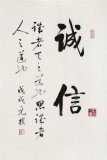 誠信
誠者天之道也思誠者
人之道也 戊戌